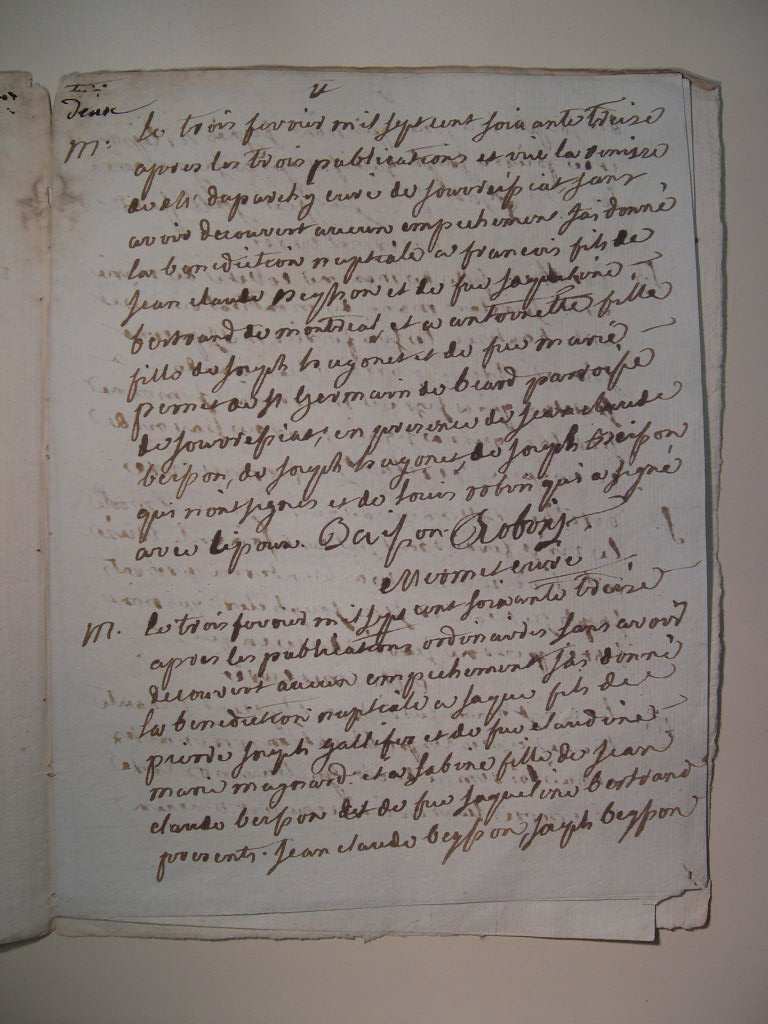 deux
M. Le trois fevrier mil sept cent soixante treise
apres les trois publications et vue la remise
de Mr duparchy curé de souvressiat sans
avoir decouvert aucun empechement jai donné
la benediction nuptiale a francois fils de
jean claude beysson et de fue jaqueline
bertrand de montreal, et a antoinette fille
fille de joseph hugonet et de fue marie
pernet de st Germain de beard paroisse
de souvressiat, en presence de jean claude
beisson, de joseph hugonet, de joseph beisson
qui n'ont signés et de louis robin qui a signé
avec lepoux. Beisson Robin
curé
M. Le trois fevrier mil sept cent soixante treise
apres les publications ordinaires sans avoir
decouvert aucun empechement jai donné
la benediction nuptiale a jaque fils de
pierre joseph gallifet et de fue claudine
marie magnard et a sabine fille de jean
claude beisson et de fue jaqueline bertrand
presents. jean claude beysson, joseph beysson